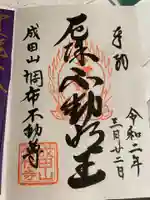 奉拝
令和二年
三月廿二日
厄除不動明王
成田山調布不動尊